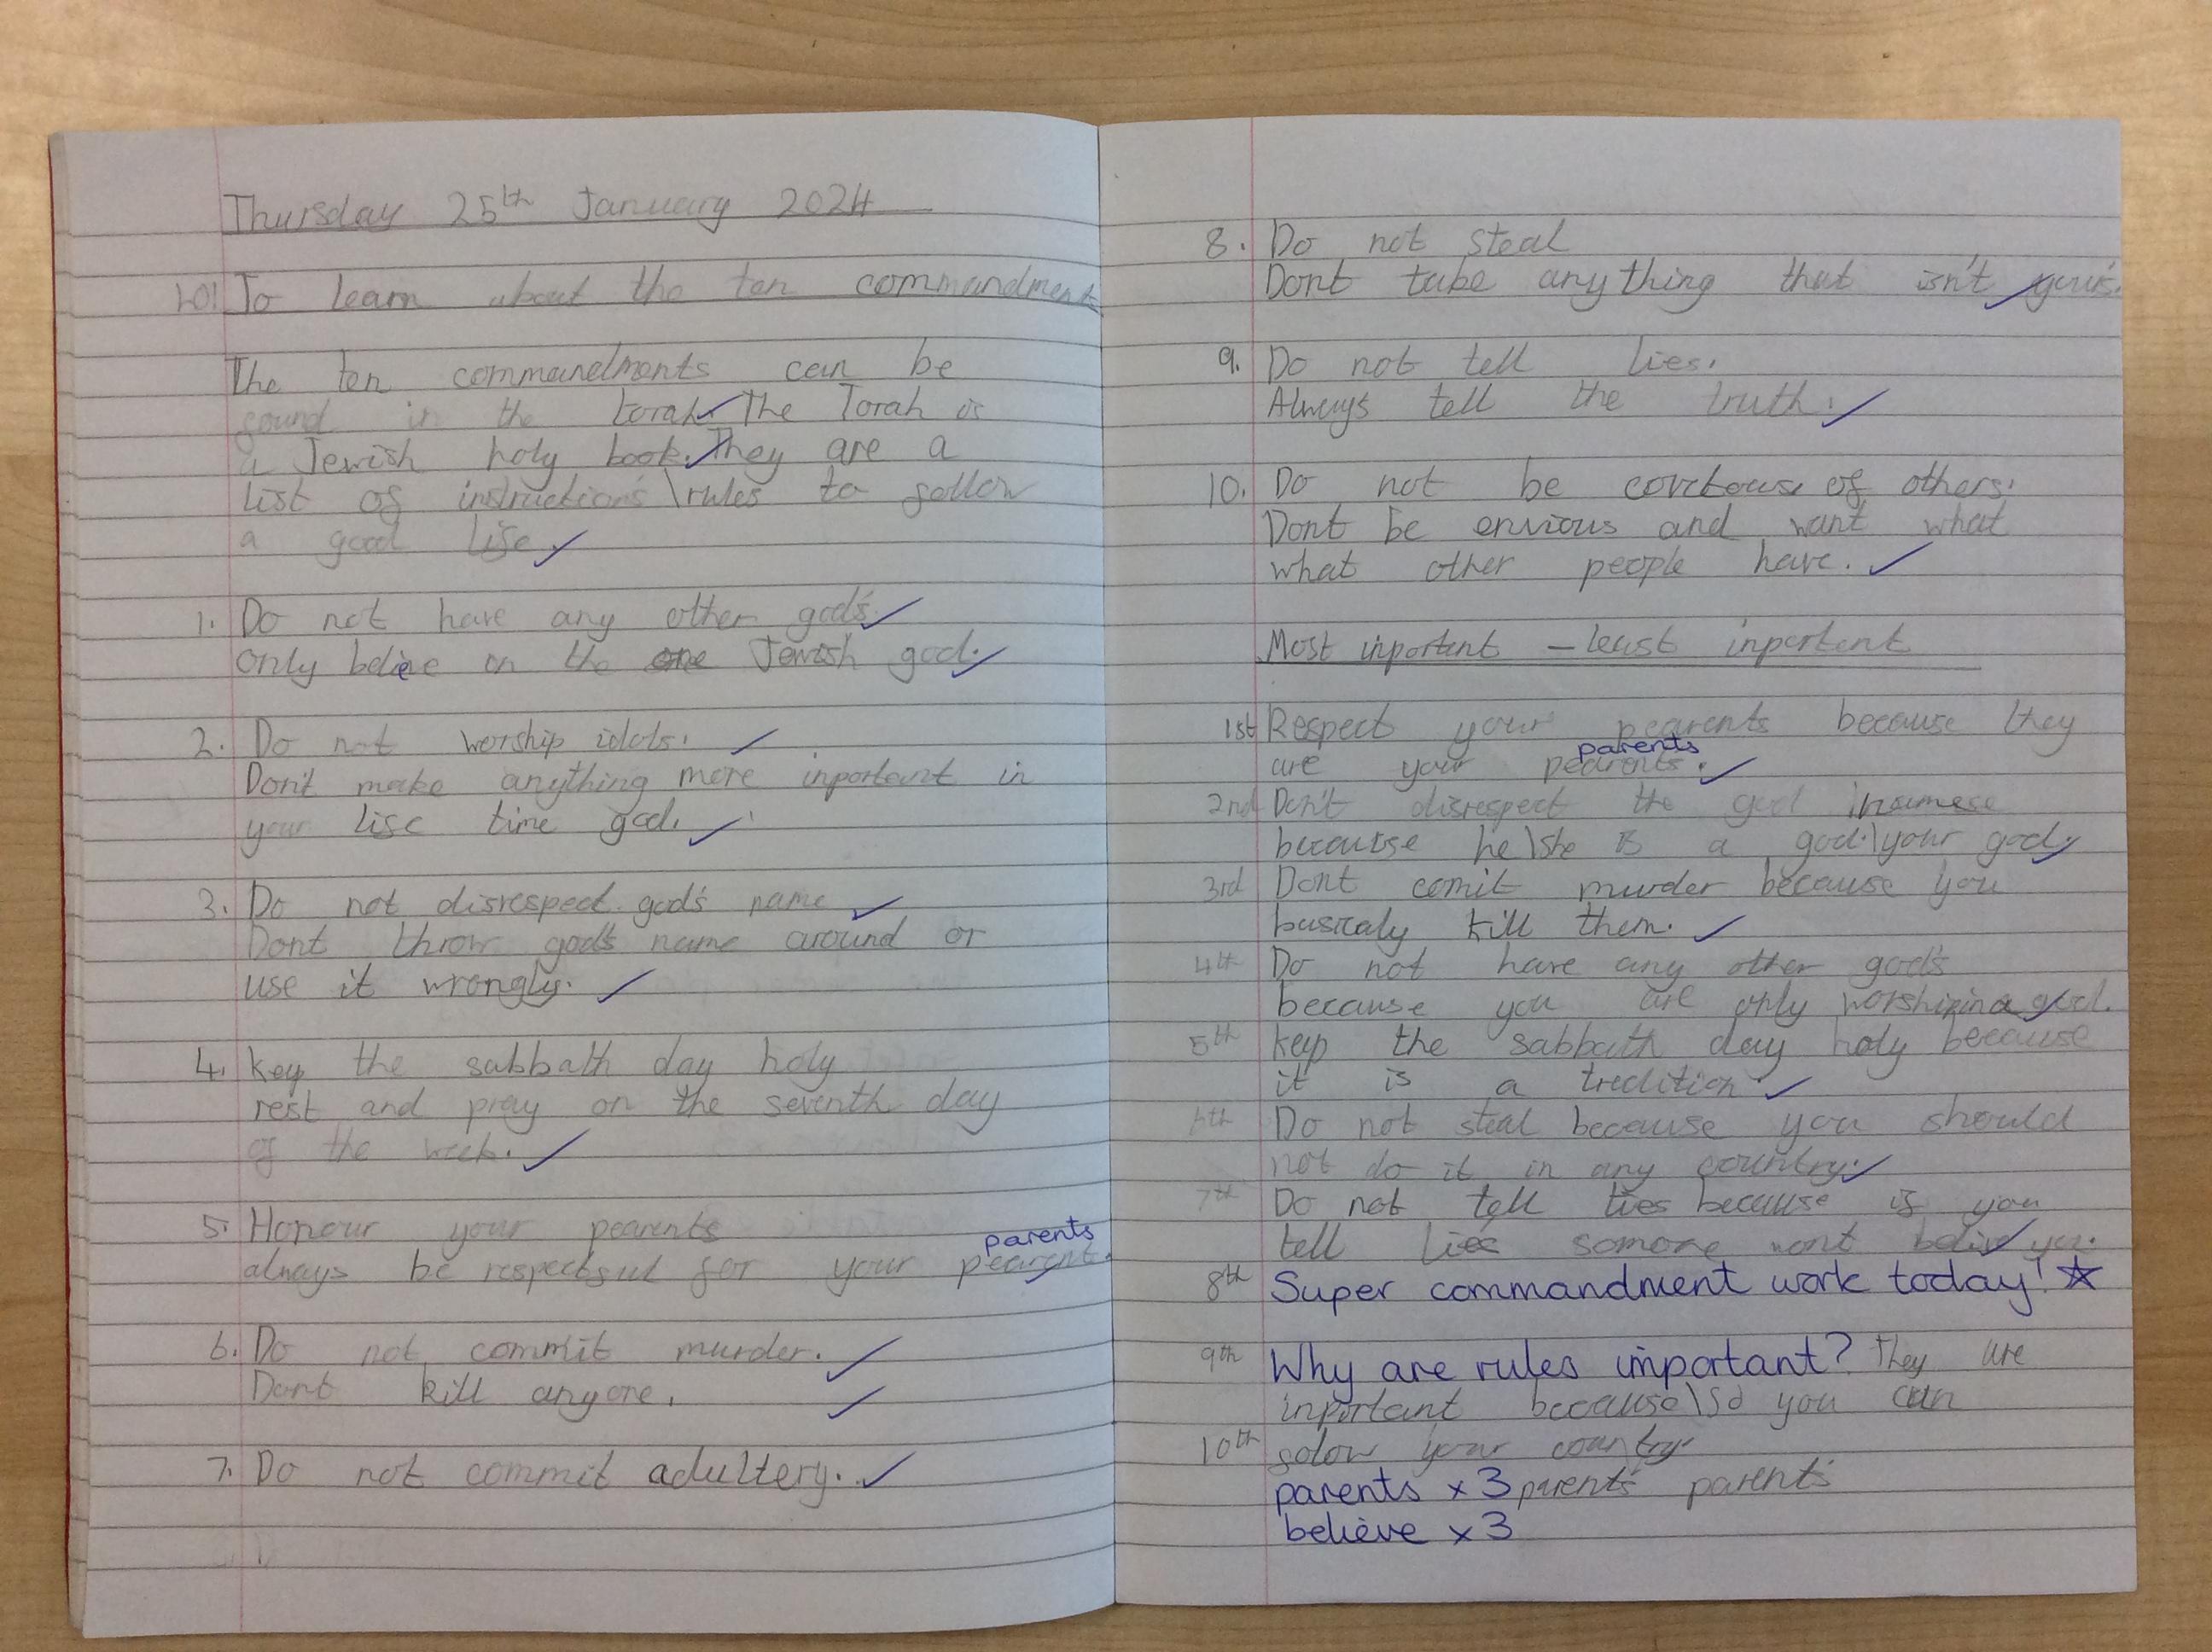 Thursday 25th January 2024
LO! To learn about the ten commandments
The ten commandments can be
found in the torah. The Torah is
a Jewish holy book. They are a
list of instructions \rules to follow
a good life
1. Do not have any other gods
only beliee in the one Jewish god.
2. Do not worship idols.
Don't make anything more inportant in
your life time god.
3. Do not disrespect god's name
Dont throw gods name around or
use it wrongly.
4. keep the sabbath day holy
rest and pray on the seventh day
of the week.
5. Honour your pearents
parents
always be respectful for your pearents.
6. Do not commit murder.
Dont kill anyone.
7. Do not commit adultery.
8. Do not steal
Dont take anything that isn't yours.
9. Do not tell lies.
Always tell the truth.
10. Do not be of others.
Dont be envious and want what
what other people have.
Most inportent – least inportent
1st Respect your pearents because they
parents
are your pearents.
2nd Don't disrespect the god
because he\she is a god.\your god
3rd Dont comit murder because you
basicaly kill them.
4th Do not have any other gods
because you are only worshiping god.
5th keep the sabbath day holy because
it is a tredition
6th Do not steal because you should
not do it in any country.
7th Do not tell lies because if you
tell lies somone wont belive you.
8th Super commandment work today! ☆
9th Why are rules important? They are
inportant because\so you can
10th folow your country.
parents x 3 parents parents
believe x 3